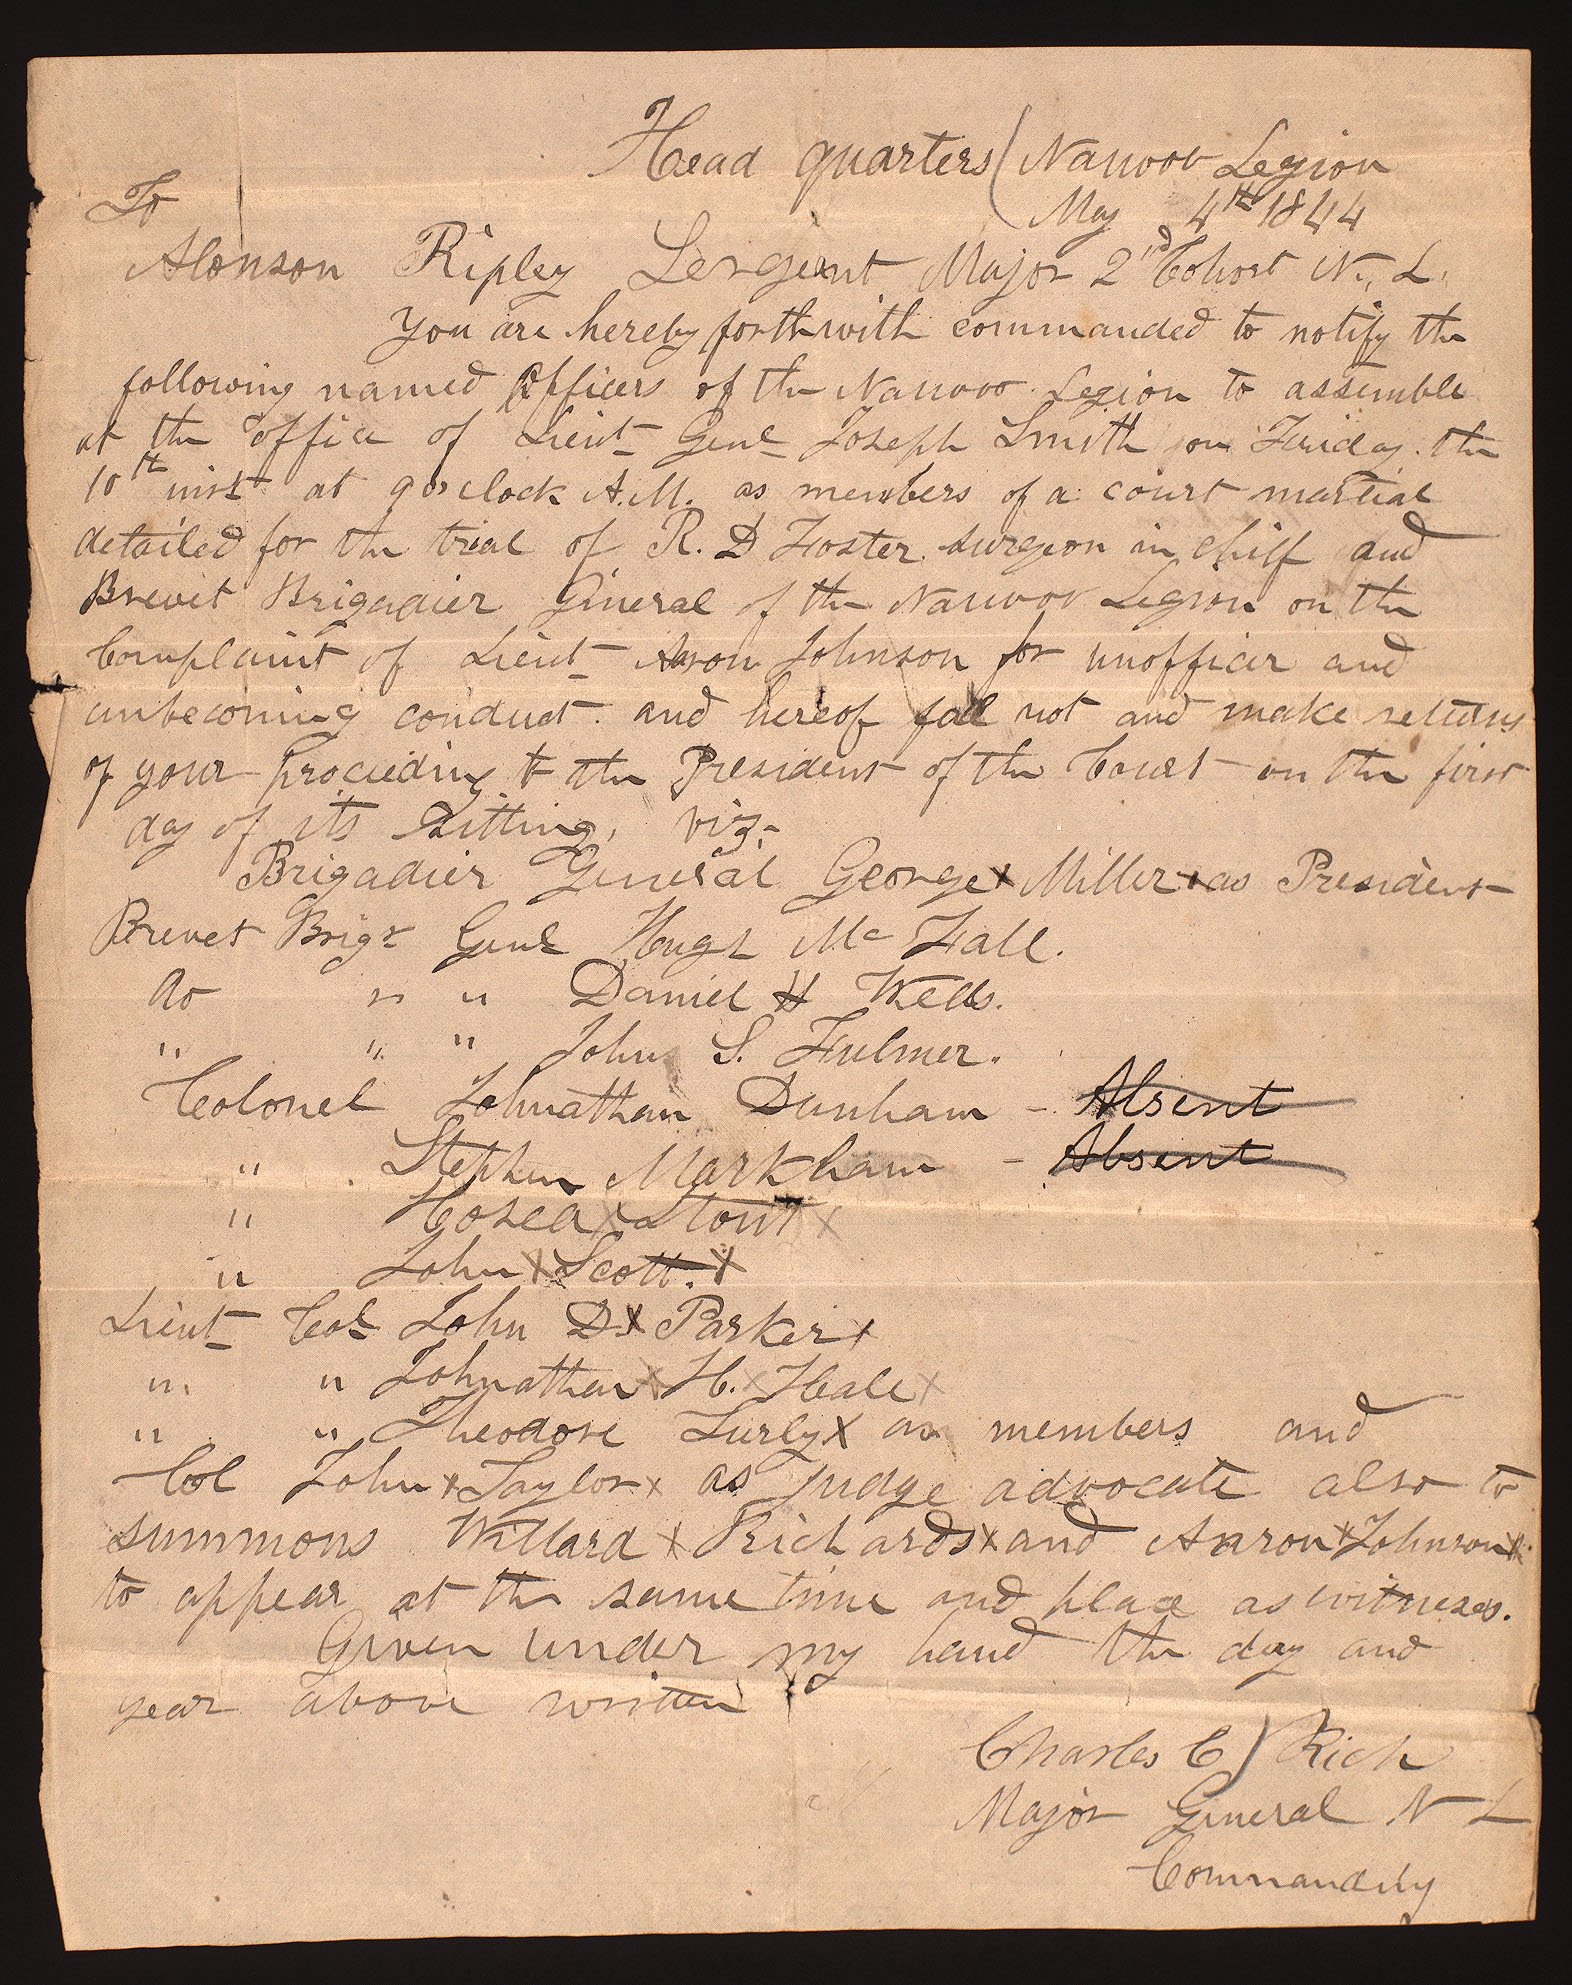 Head quarters ( Nauvoo Legion
To
May 4th 1844
Alonson Ripley Sergient Major 2nd Cohort N. L.
You are hereby forthwith commanded to notify the
following named officers of the Nauvoo Legion to assemble
at the office of Lieut Genl Joseph Smith on Friday the
10th inst at 9 oclock A.M. as members of a court martial
detailed for the trial of R. D Foster surgeon in chief and
Brevet Brigadier General of the Nauvoo Legion on the
Complaint of Lieut Aaron Johnson for unofficer and
unbecoming conduct. and hereof fail not and make returns
of your proceeding to the President of the Court on the first
day of its sitting, viz.
Brigadier General George x Miller x as President
Brevet Brigr Genl Hugh Mc Fall.
do " " Daniel H Wells.
" " " John S. Fulmer.
Colonel Johnathan Dunham - Absent
" Stephen Markham - Absent
" Hosea x Stout x
" John x Scott. x
Lieut Col John D x Parker x
" " Johnathan x H. x Hale x
" " Theodore Turly x as members and
Col John x Taylor x as judge advocate also to
summons Willard x Richards x and Aaron x Johnson x
to appear at the same time and place as witneses.
Given under my hand the day and
year above written
Charles C Rich
Major General N L
Commanding